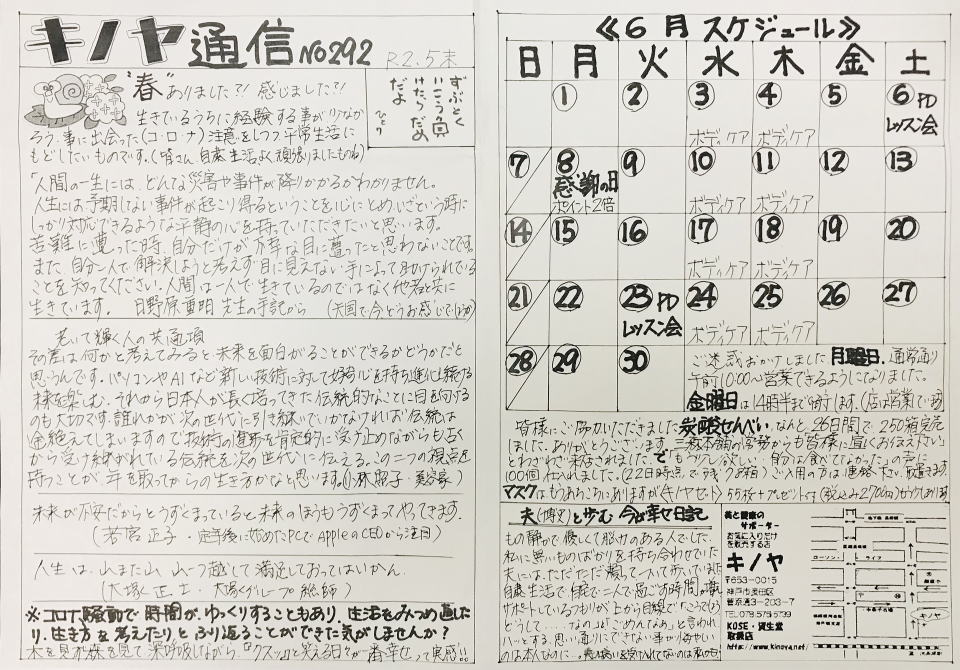 キノヤ通信 No292 R2.5末
ずぶとく
いこう負
けたらだめ
だよ
ひとり
"春"ありました?! 感じました?!
生きているうちに経験する事がけなか
ろう事に出会った(コロナ)注意をしつつ平常生活に
もどしたいものです。(皆さん自粛生活よく頑張りましたものね)
「人間の一生には、どんな災害や事件が降りかかるかわかりません。
人生には予期しない事が起こり得るということを心にとめ、いざという時に
しっかり対応できるような平静の心を持っていただきたいと思います。
苦難に遭った時、自分だけが不幸な目に遭ったと思わないことです。
また、自分一人で解決しようと考えず目に見えない手によって助けられている
ことを知ってください。人間は一人で生きているのではなく他者と共に
生きています。 日野原重明先生の手記から (天国で今どうお感じでしょうか)
老いて輝く人の共通項
その差は何かと考えてみると未来を面白がることができるかどうかだと
思うんです。パソコンやAIなど新しい技術に対して好奇心を持ち進化し続ける
未来を楽しむ。それから日本人が長く培ってきた伝統的なことに目を向ける
のも大切です。誰かが次の世代に引き継いでいかなければ伝統は
途絶えてしまいますので技術の進歩を肯定的に受け止めながらも古く
から受け継がれている伝統を次の世代に伝える。この二つの視点を
持つことが、年を取ってからの生き方かなと思います。(小林照子・美容家)
未来が不安だからとうずくまっていると未来のほうもうずくまってやってきます。
(若宮正子・定年後に始めたPCでAppleのCEOから注目)
人生は、山また山、山一つ越して満足しておってはいかん。
(大塚正士・大塚グループ総師)
※コロナ騒動で時間が、ゆっくりすることもあり、生活をみつめ直した
り、生き方を考えたりとふり返ることができた気がしませんか?
木を見か森を見て深呼吸しながら、「クスッ」と笑える日々が一番幸せって実感!!
≪6月スケジュール≫
日 月 火 水 木 金 土
1 2 3 4 5 6 PD
レッスン会
ボディケア ボディケア
7 8 9 10 11 12 13
感謝の日
ポイント2倍 ボディケア ボディケア
14 15 16 17 18 19 20
ボディケア ボディケア
21 22 23 PD 24 25 26 27
レッスン会 ボディケア ボディケア
28 29 30
ご迷惑おかけしました月曜日、通常通り
午前10:00〜営業できるようになりました。
金曜日は14時半まで
皆様にご協力いただきました炭酸せんべい、なんと26日間で250箱完売
しました。ありがとうございます。三津本舗の
とわざわざ来店されました。で「もう少し欲しい、自分は食べてなかった」の声に
100個
マスクはもうあちこちにありますが(キノヤセット) 55枚+プレゼント付(税込み2700円)
夫(博史)と歩む 今が幸せ日記
もの静かで優しくて
私に無いものばかりを持ち合わせていた
夫には、ただただ
自粛生活で
サポートしているつもりが上から目線で
どうして……なの」と「ごめんなあ」と言われ
ハッとする。思い通りにできない事が
のは本人なのに…。
美と健康の
サポーター
お気に入りだけ
を販売する店
キノヤ
〒653-0015
神戸市長田区
菅原通3-203-7
TEL 078-579-5739
KOSE・資生堂
取扱店
http://www.kinoya.net/
ローソン
ライフ
キノヤ